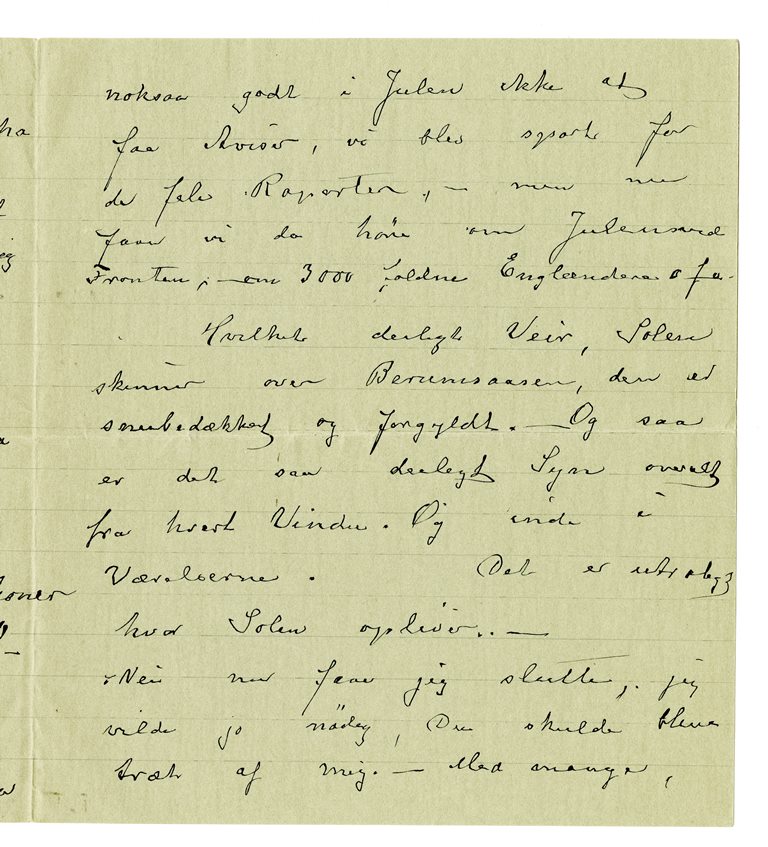 noksaa godt i Julen ikke at
faa Aviser, vi blev spart for
de fæle Raporter, – men nu
faar vi da höre om Julen ved
Fronten, – om 3000 faldne Englændere o
Hvilket deiligt Veir, Solen
skinner over Berumsaasen, den er
snebedækket og forgyldt. – Og saa
er det saa deiligt Syn overalt
fra hvert Vindu. Og inde i
Værelserne. Det er utroligt
hvor Solen opliver. –
Nei nu faar jeg slutte, jeg
vilde jo nödig, Du skulde blive
træt af mig. – Med mange,
ha
eg
ioner